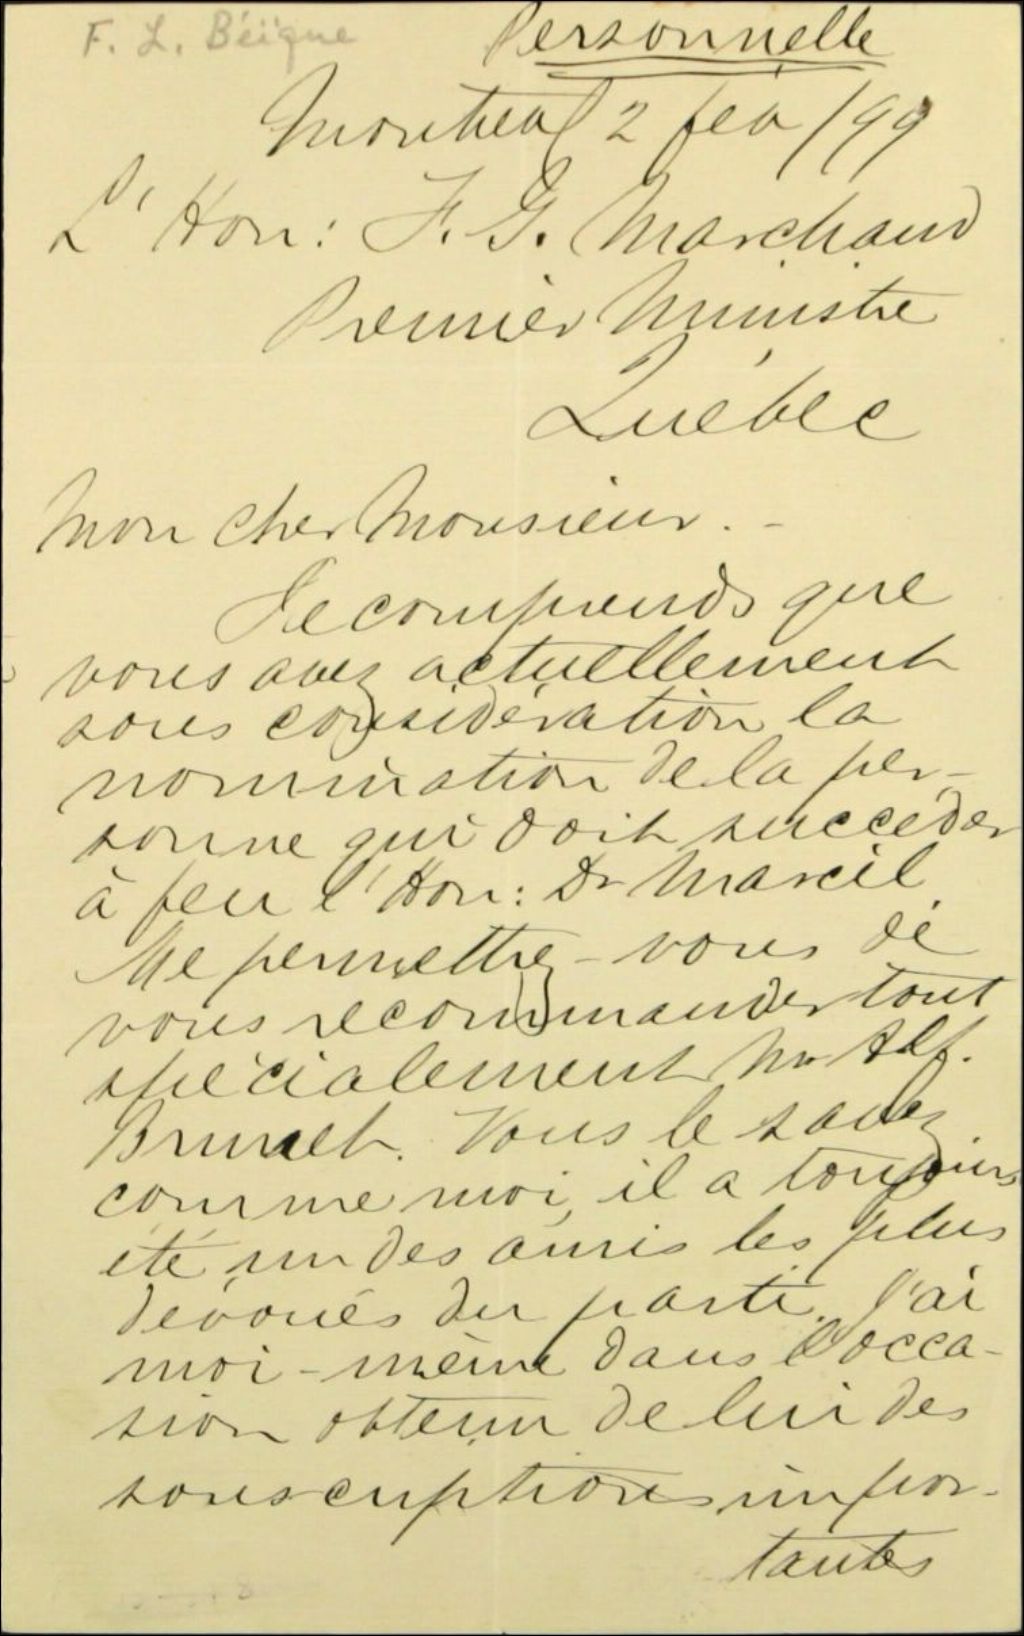 F. L. Béique
Personnelle
Montreal 2 fev /99
L'Hon: F. G. Marchand
Premier Ministre
Québec
Mon cher Monsieur. -
Je comprends que
vous avez actuellement
sous considération la
nomination de la per-
sonne qui doit succéder
à feu l'Hon: Dr Marcil
Me permettrez-vous de
vous recommander tout
spécialement Mr Alf.
Brunet. Vous le savez
comme moi, il a toujours
été un des amis les plus
dévoués du parti. J'ai
moi-même dans l'occa-
sion obtenu de lui des
souscriptions impor-
tantes